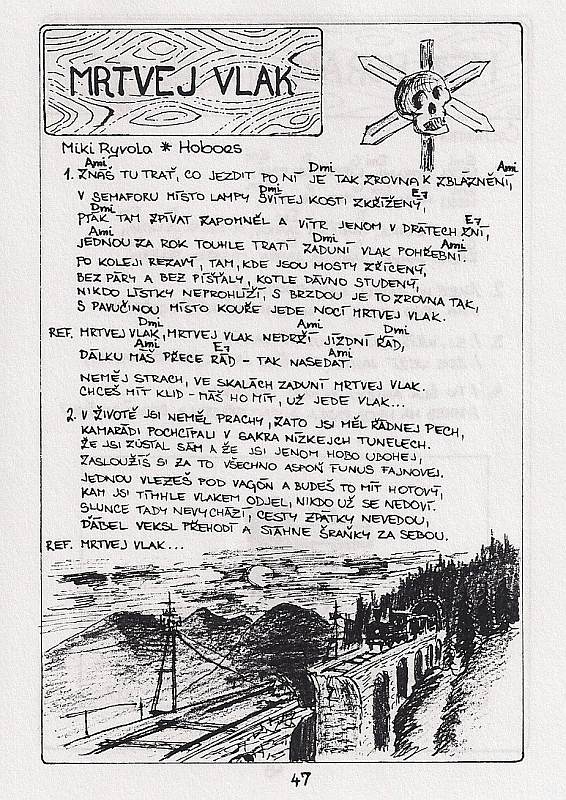 MRTVEJ VLAK
Miki Ryvola * Hoboes
Ami Dmi Ami
1. ZNÁŠ TU TRAŤ, CO JEZDIT PO NÍ JE TAK ZROVNA K ZBLÁZNĚNÍ,
Dmi E7
V SEMAFORU MÍSTO LAMPY SVÍTĚJ KOSTI ZKŘÍŽENÝ,
Dmi E7
PTÁK TAM ZPÍVAT ZAPOMNĚL A VÍTR JENOM V DRÁTECH ZNÍ,
Ami Dmi Ami
JEDNOU ZA ROK TOUHLE TRATÍ ZADUNÍ VLAK POHŘEBNÍ.
PO KOLEJI REZAVÝ, TAM, KDE JSOU MOSTY ZŘÍCENÝ,
BEZ PÁRY A BEZ PÍŠŤALY, KOTLE DÁVNO STUDENÝ,
NIKDO LÍSTKY NEPROHLÍŽÍ, S BRZDOU JE TO ZROVNA TAK,
S PAVUČINOU MÍSTO KOUŘE JEDE NOCÍ MRTVEJ VLAK.
Dmi Ami Dmi
REF. MRTVEJ VLAK, MRTVEJ VLAK NEDRŽÍ JÍZDNÍ ŘÁD,
Ami E7 Ami
DÁLKU MÁŠ PŘECE RÁD - TAK NASEDAT.
NEMĚJ STRACH, VE SKALÁCH ZADUNÍ MRTVEJ VLAK.
CHCEŠ MÍT KLID - MÁŠ HO MÍT, UŽ JEDE VLAK...
2. V ŽIVOTĚ JSI NEMĚL PRACHY, ZATO JSI MĚL ŘÁDNEJ PECH,
KAMARÁDI POCHCÍPALI V SAKRA NÍZKEJCH TUNELECH.
ŽE JSI ZŮSTAL SÁM A ŽE JSI JENOM HOBO UBOHEJ,
ZASLOUŽÍŠ SI ZA TO VŠECHNO ASPOŇ FUNUS FAJNOVEJ.
JEDNOU VLEZEŠ POD VAGÓN A BUDEŠ TO MÍT HOTOVÝ,
KAM JSI TÍMHLE VLAKEM ODJEL, NIKDO UŽ SE NEDOVÍ.
SLUNCE TADY NEVYCHÁZÍ, CESTY ZPÁTKY NEVEDOU,
ĎÁBEL VEKSL PŘEHODÍ A STÁHNE ŠRAŇKY ZA SEBOU.
REF. MRTVEJ VLAK...
47